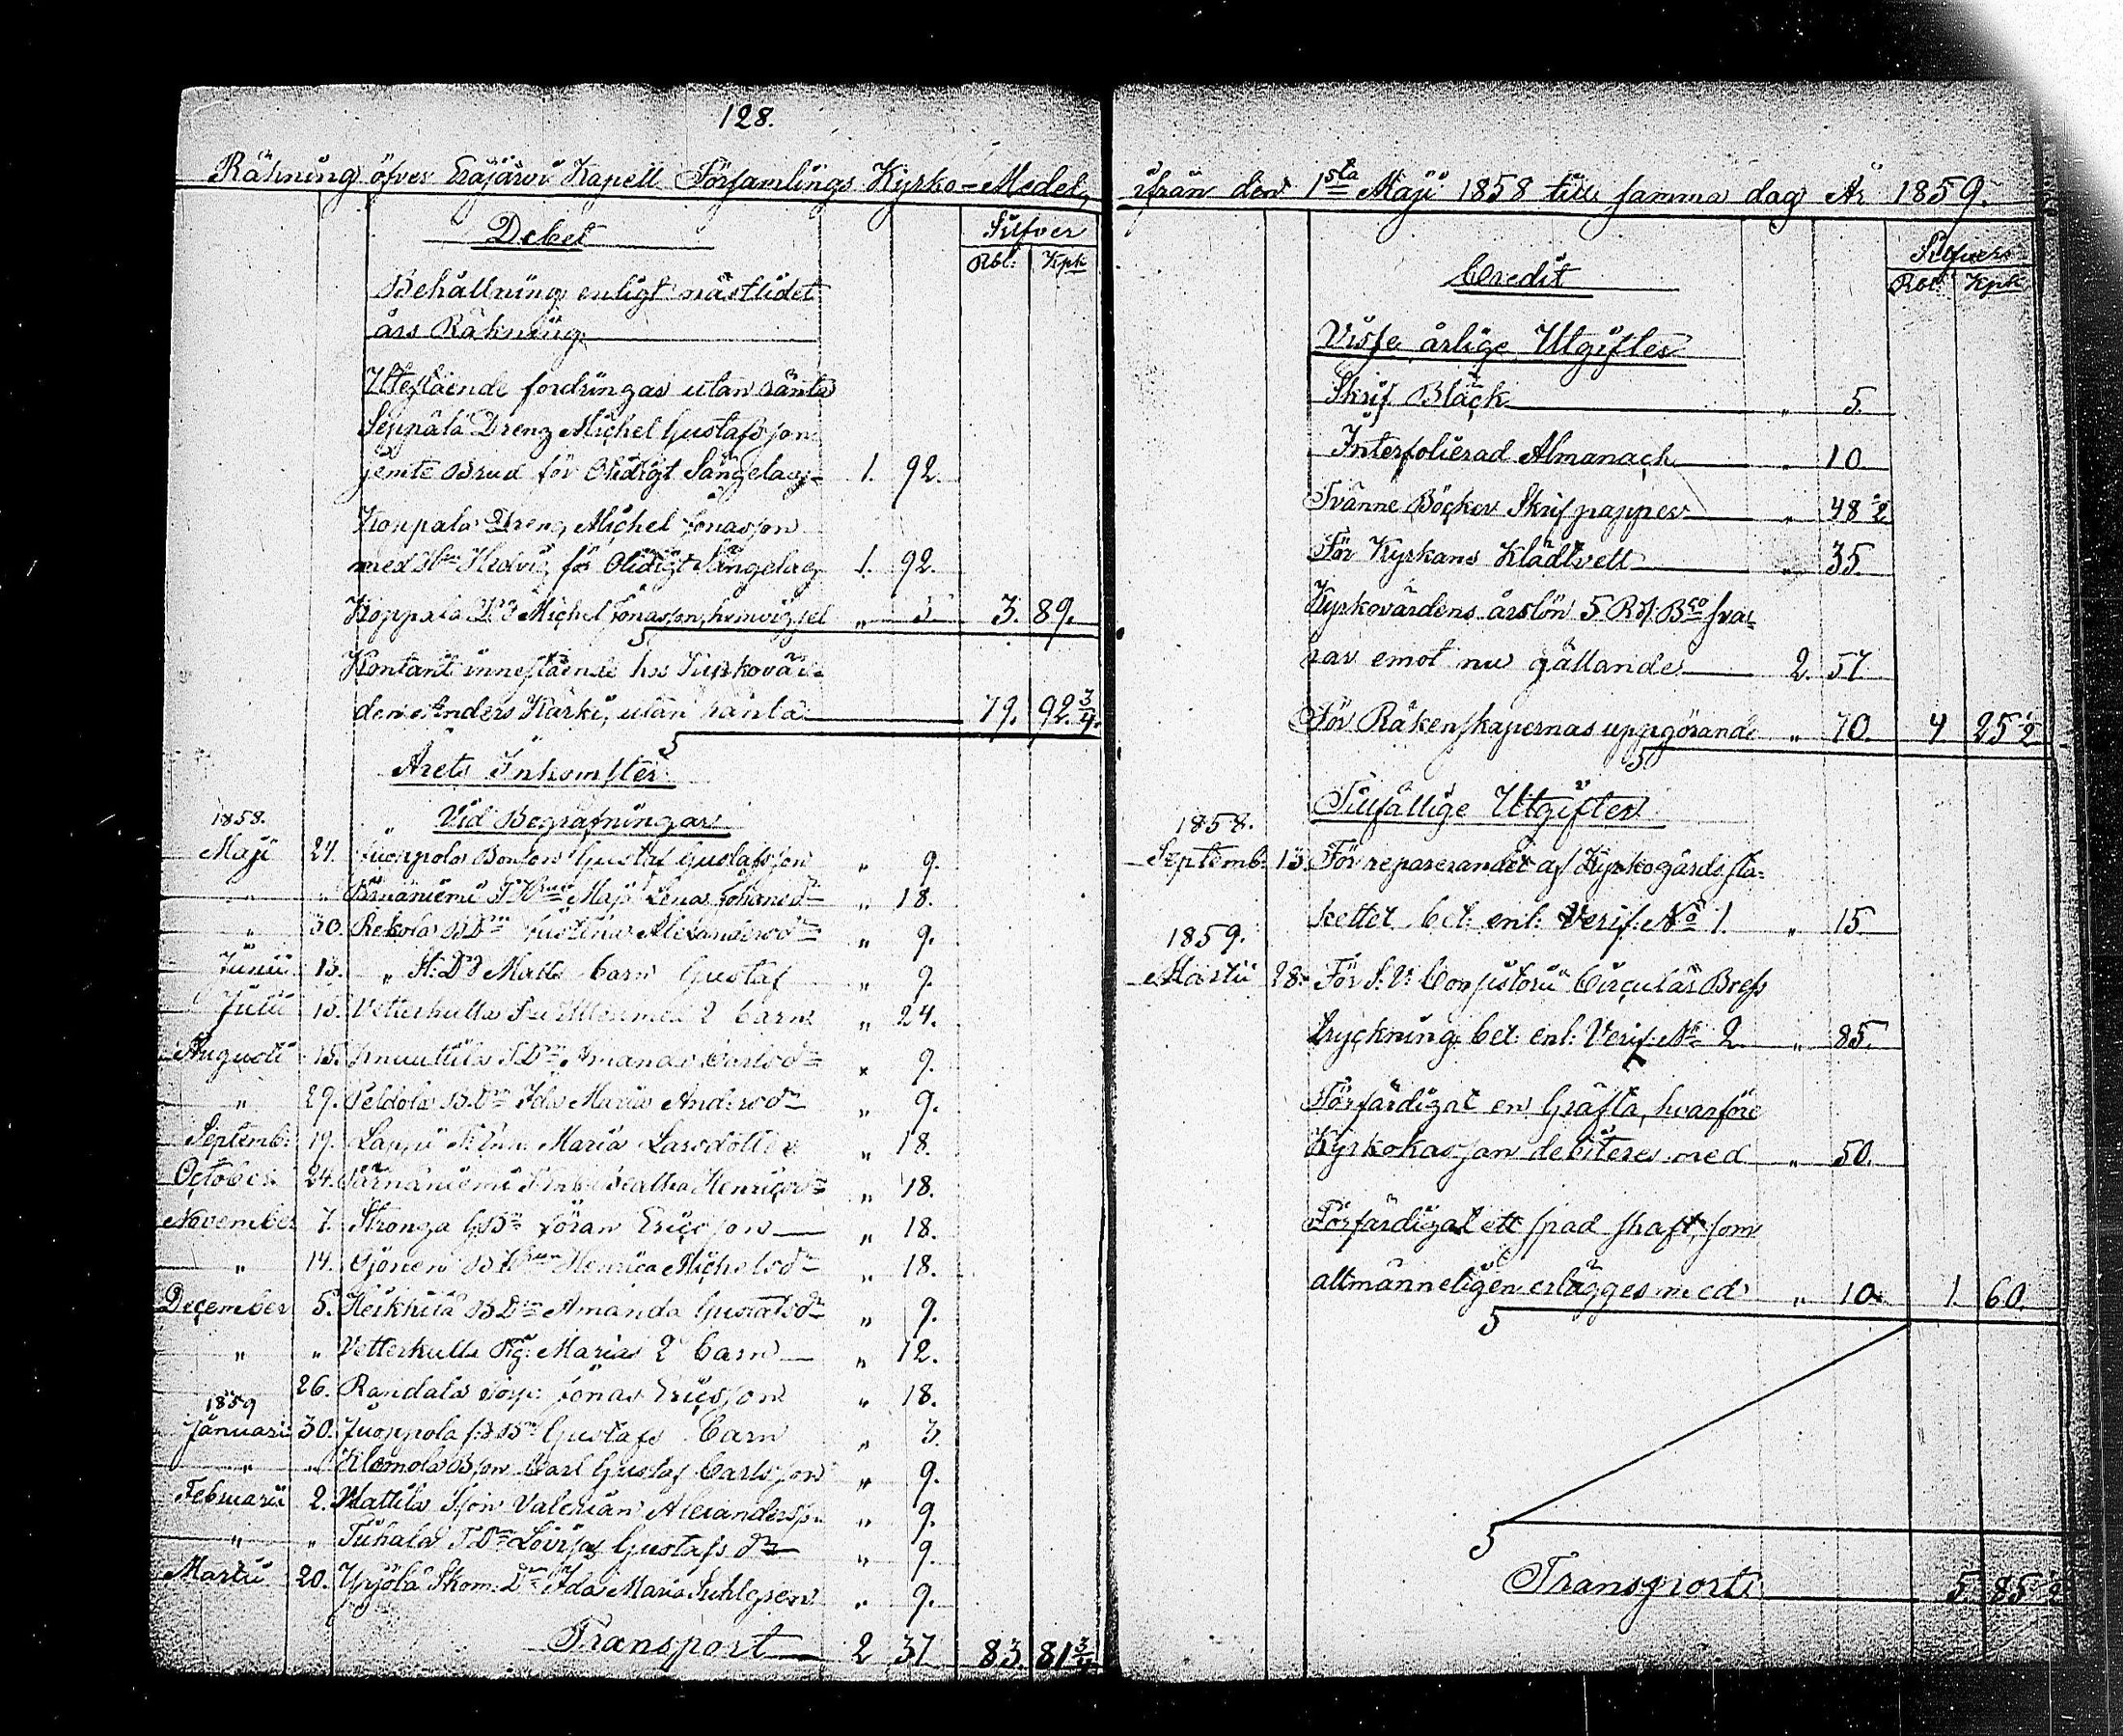 128.
Räkning öfver Eräjärvi Kapell Församlings Kyrko-Medel,
Debet
Silfver
Rbl: Kpk
Behållning enligt nästlidet
års Räkning
Utestående fordringar utan ränta
Seppälä Dreng Michel Gustafsson
jemte Brud för Otidigt Sängelag 1. 92.
Koppala Dreng Michel Jonasson
med Hedvig för Otidigt Sängelag 1. 92.
Koppala Dg Michel Jonasson, hemvigsel " 5 3. 89.
Kontant innestående hos Kyrkovär-
den Anders Kärki, utan ränta 79. 92 3/4.
Årets Inkomster
Vid Begrafningar
1858.
Maji 24. Juoppola Bonson Gustaf Gustafsson " 9.
" " Maja Lena Johansdr " 18.
" 30. Rekola B.Dr Justina Alexandersdr " 9.
Junii 13. " St: Dg Matts barn Gustaf " 9.
Julii 15. Vetterkulla 2 barn " 24.
Augusti 15. S.Dr Amanda Carlsdr " 9.
" 29. Peldola B.Dr Ida Maria Andersdr " 9.
Septemb: 19. Lappi Maria Larsdotter " 18.
October 24. Särnäniemi Beatha Henricsdr " 18.
November 7. Stronga Göran Ericsson " 18.
" 14. Henrica Michelsdr " 18.
December 5. Heikkilä B.Dr Amanda Gustafsdr " 9.
" " Vetterkulla Pig: Maria 2 barn " 12.
26. Randala Jonas Ericsson " 18.
1859
Januari 30. Juoppola Gustafs barn " 3.
" " Klemola Bson Carl Gustaf Carlsson " 9.
Februarii 2. Mattila Sson Valerian Alexanderss. " 9.
" " Tuhala T.Dr Lovisa Gustafsdr " 9.
Martii 20. Yrjölä Skom: Dr Ida Maria " 9.
Transport 2 37 83. 81 3/4
ifrån den 1sta Maji 1858 till samma dag År 1859.
Credit
Silfver
Rbl: Kpk
Visse årlige Utgifter
Skrif Bläck " 5.
Interfolierad Almanach " 10
Tvänne Böcker Skrifpapper " 48 1/2
För Kyrkans Klädtvett " 35.
Kyrkovärdens årslön 5 Rd Bco sva-
rar emot nu gällande 2. 57.
För Räkenskapernas uppgörande " 70. 4 25 1/2
Tillfällige Utgifter
1858.
Septemb: 13. För reparerandet af Kyrkogårds sta-
kettet bet: enl: Verif: No 1. " 15
1859.
Martii 28. För S: V: Consistorii Circulär Brefs
tryckning bet: enl: Verif: No 2 " 85.
Förfärdigat en Gräfta, hvarföre
Kyrkokassan debiteres med " 50.
Förfärdigat ett spad skaft, som
allmänneligen erlägges med " 10. 1. 60.
Transport 5. 85 1/2